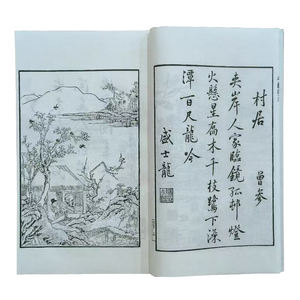 村居 曾参
夾岸人家臨鏡孤邨燈
火懸星喬木千枝鷺下深
潭百尺龍吟
盛士龍